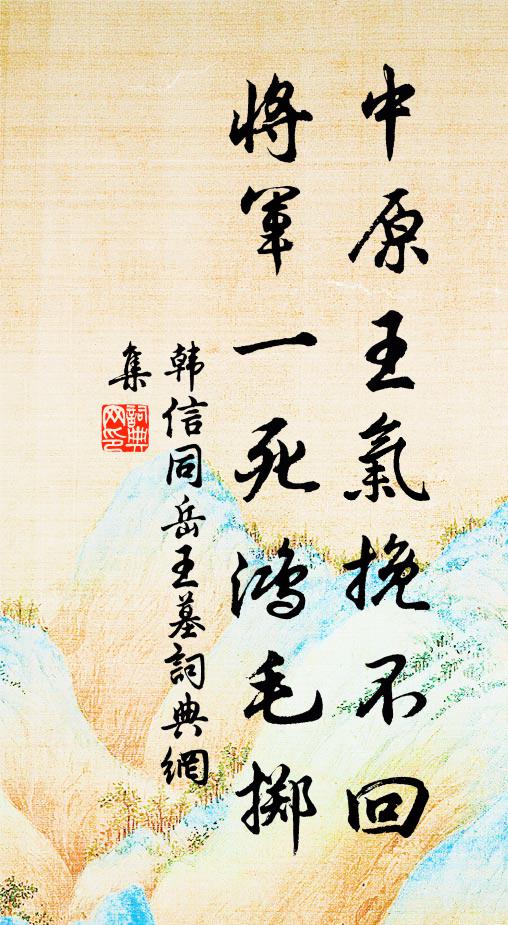 中原王氣挽不回
将軍一死鴻毛擲
韩信同岳王墓詞典網
集
詞典網印